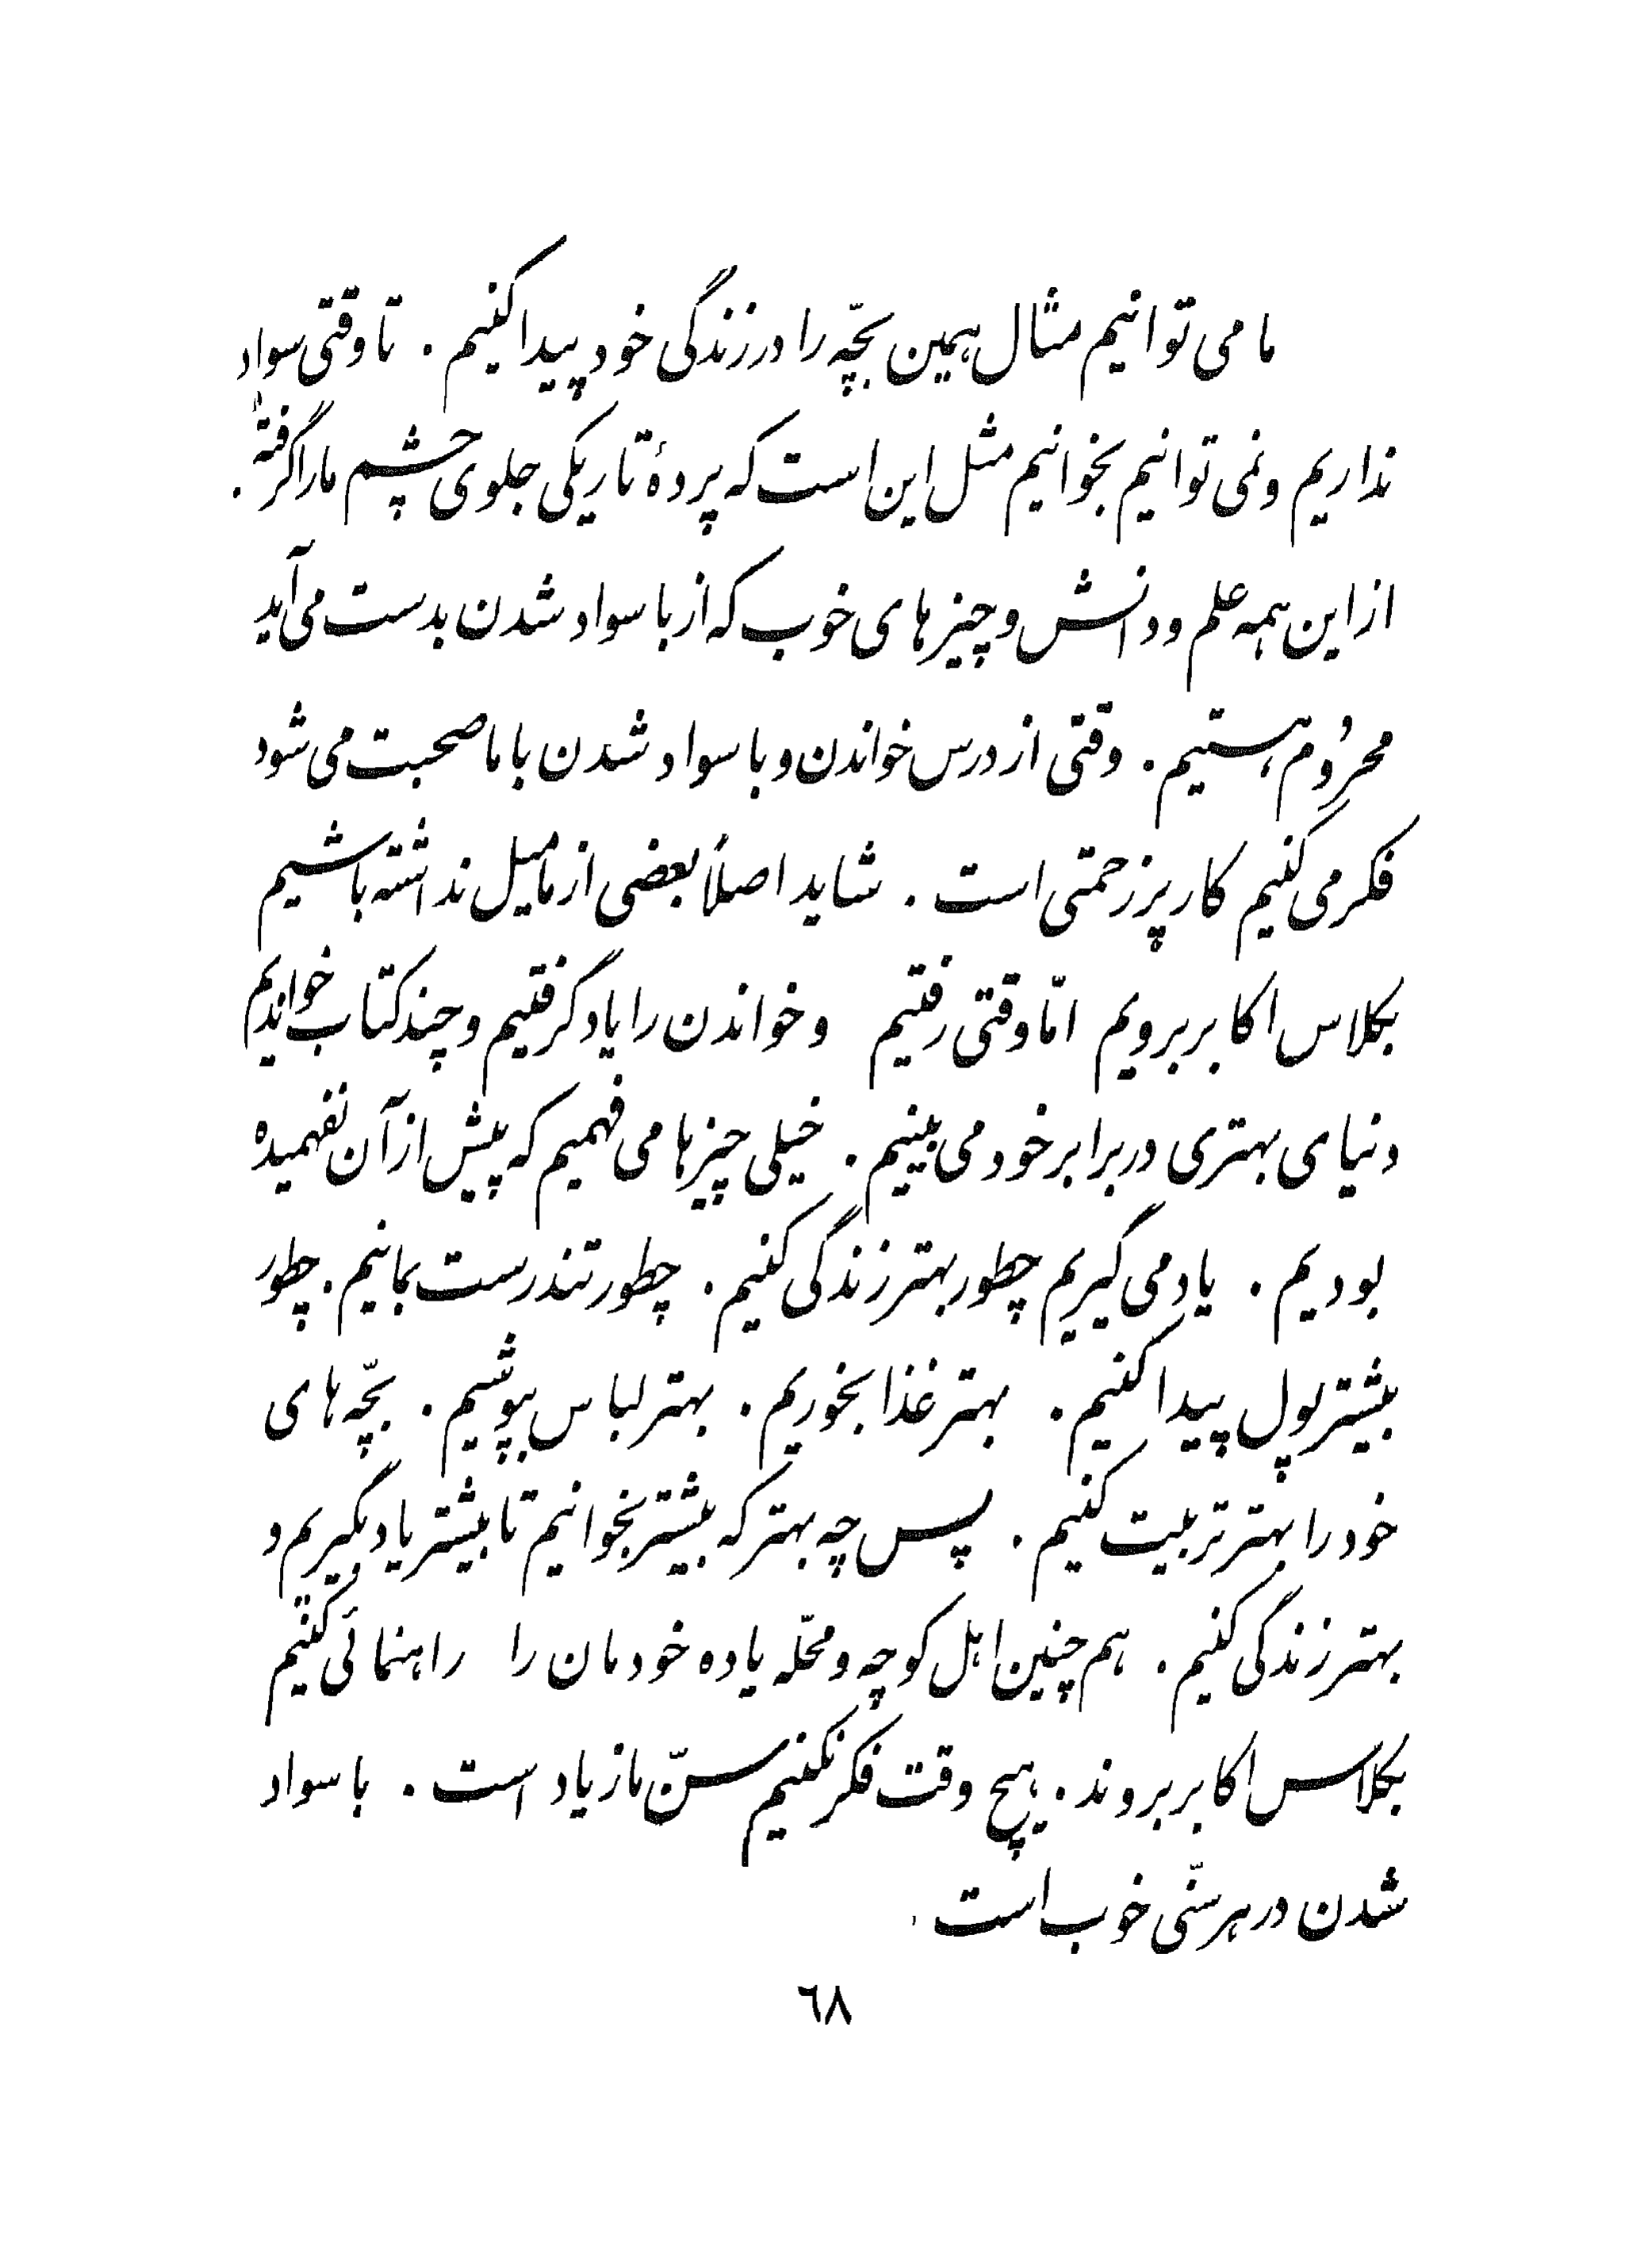 ما می توانیم مثال همین بچّه را در زندگی خود پیدا کنیم . تا وقتی سواد
نداریم و نمی توانیم بخوانیم مثل این است که پردهٔ تاریکی جلوی چشم ما را گرفته .
از این همه علم و دانش و چیزهای خوب که از با سواد شدن بدست می آید
محرُوم هستیم . وقتی از درس خواندن و با سواد شدن با ما صحبت می شود
فکر می کنیم کار پر زحمتی است . شاید اصلاً بعضی از ما میل نداشته باشیم
بکلاس اکابر برویم امّا وقتی رفتیم و خواندن را یاد گرفتیم و چند کتاب خواندیم
دنیای بهتری در برابر خود می بینیم . خیلی چیزها می فهمیم که پیش از آن نفهمیده
بودیم . یاد می گیریم چطور بهتر زندگی کنیم . چطور تندرست بمانیم . چطور
بیشتر پول پیدا کنیم . بهتر غذا بخوریم . بهتر لباس بپوشیم . بچّه های
خود را بهتر تربیت کنیم . پس چه بهتر که بیشتر بخوانیم تا بیشتر یاد بگیریم و
بهتر زندگی کنیم . هم چنین اهل کوچه و محلّه یا ده خودمان را راهنمائی کنیم
بکلاس اکابر بروند . هیچ وقت فکر نکنیم سنّ ما زیاد است . با سواد
شدن در هر سنّی خوب است .
٦٨